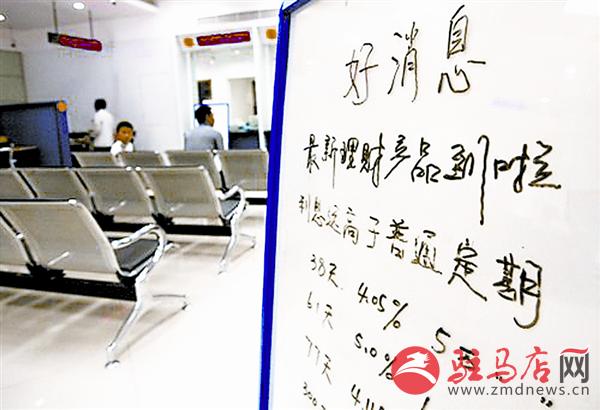 好消息
最新理财产品到啦
利息远高于普通定期
38天 4.05% 5万
61天 5.0%
77天
驻马店网
www.zmdnews.cn